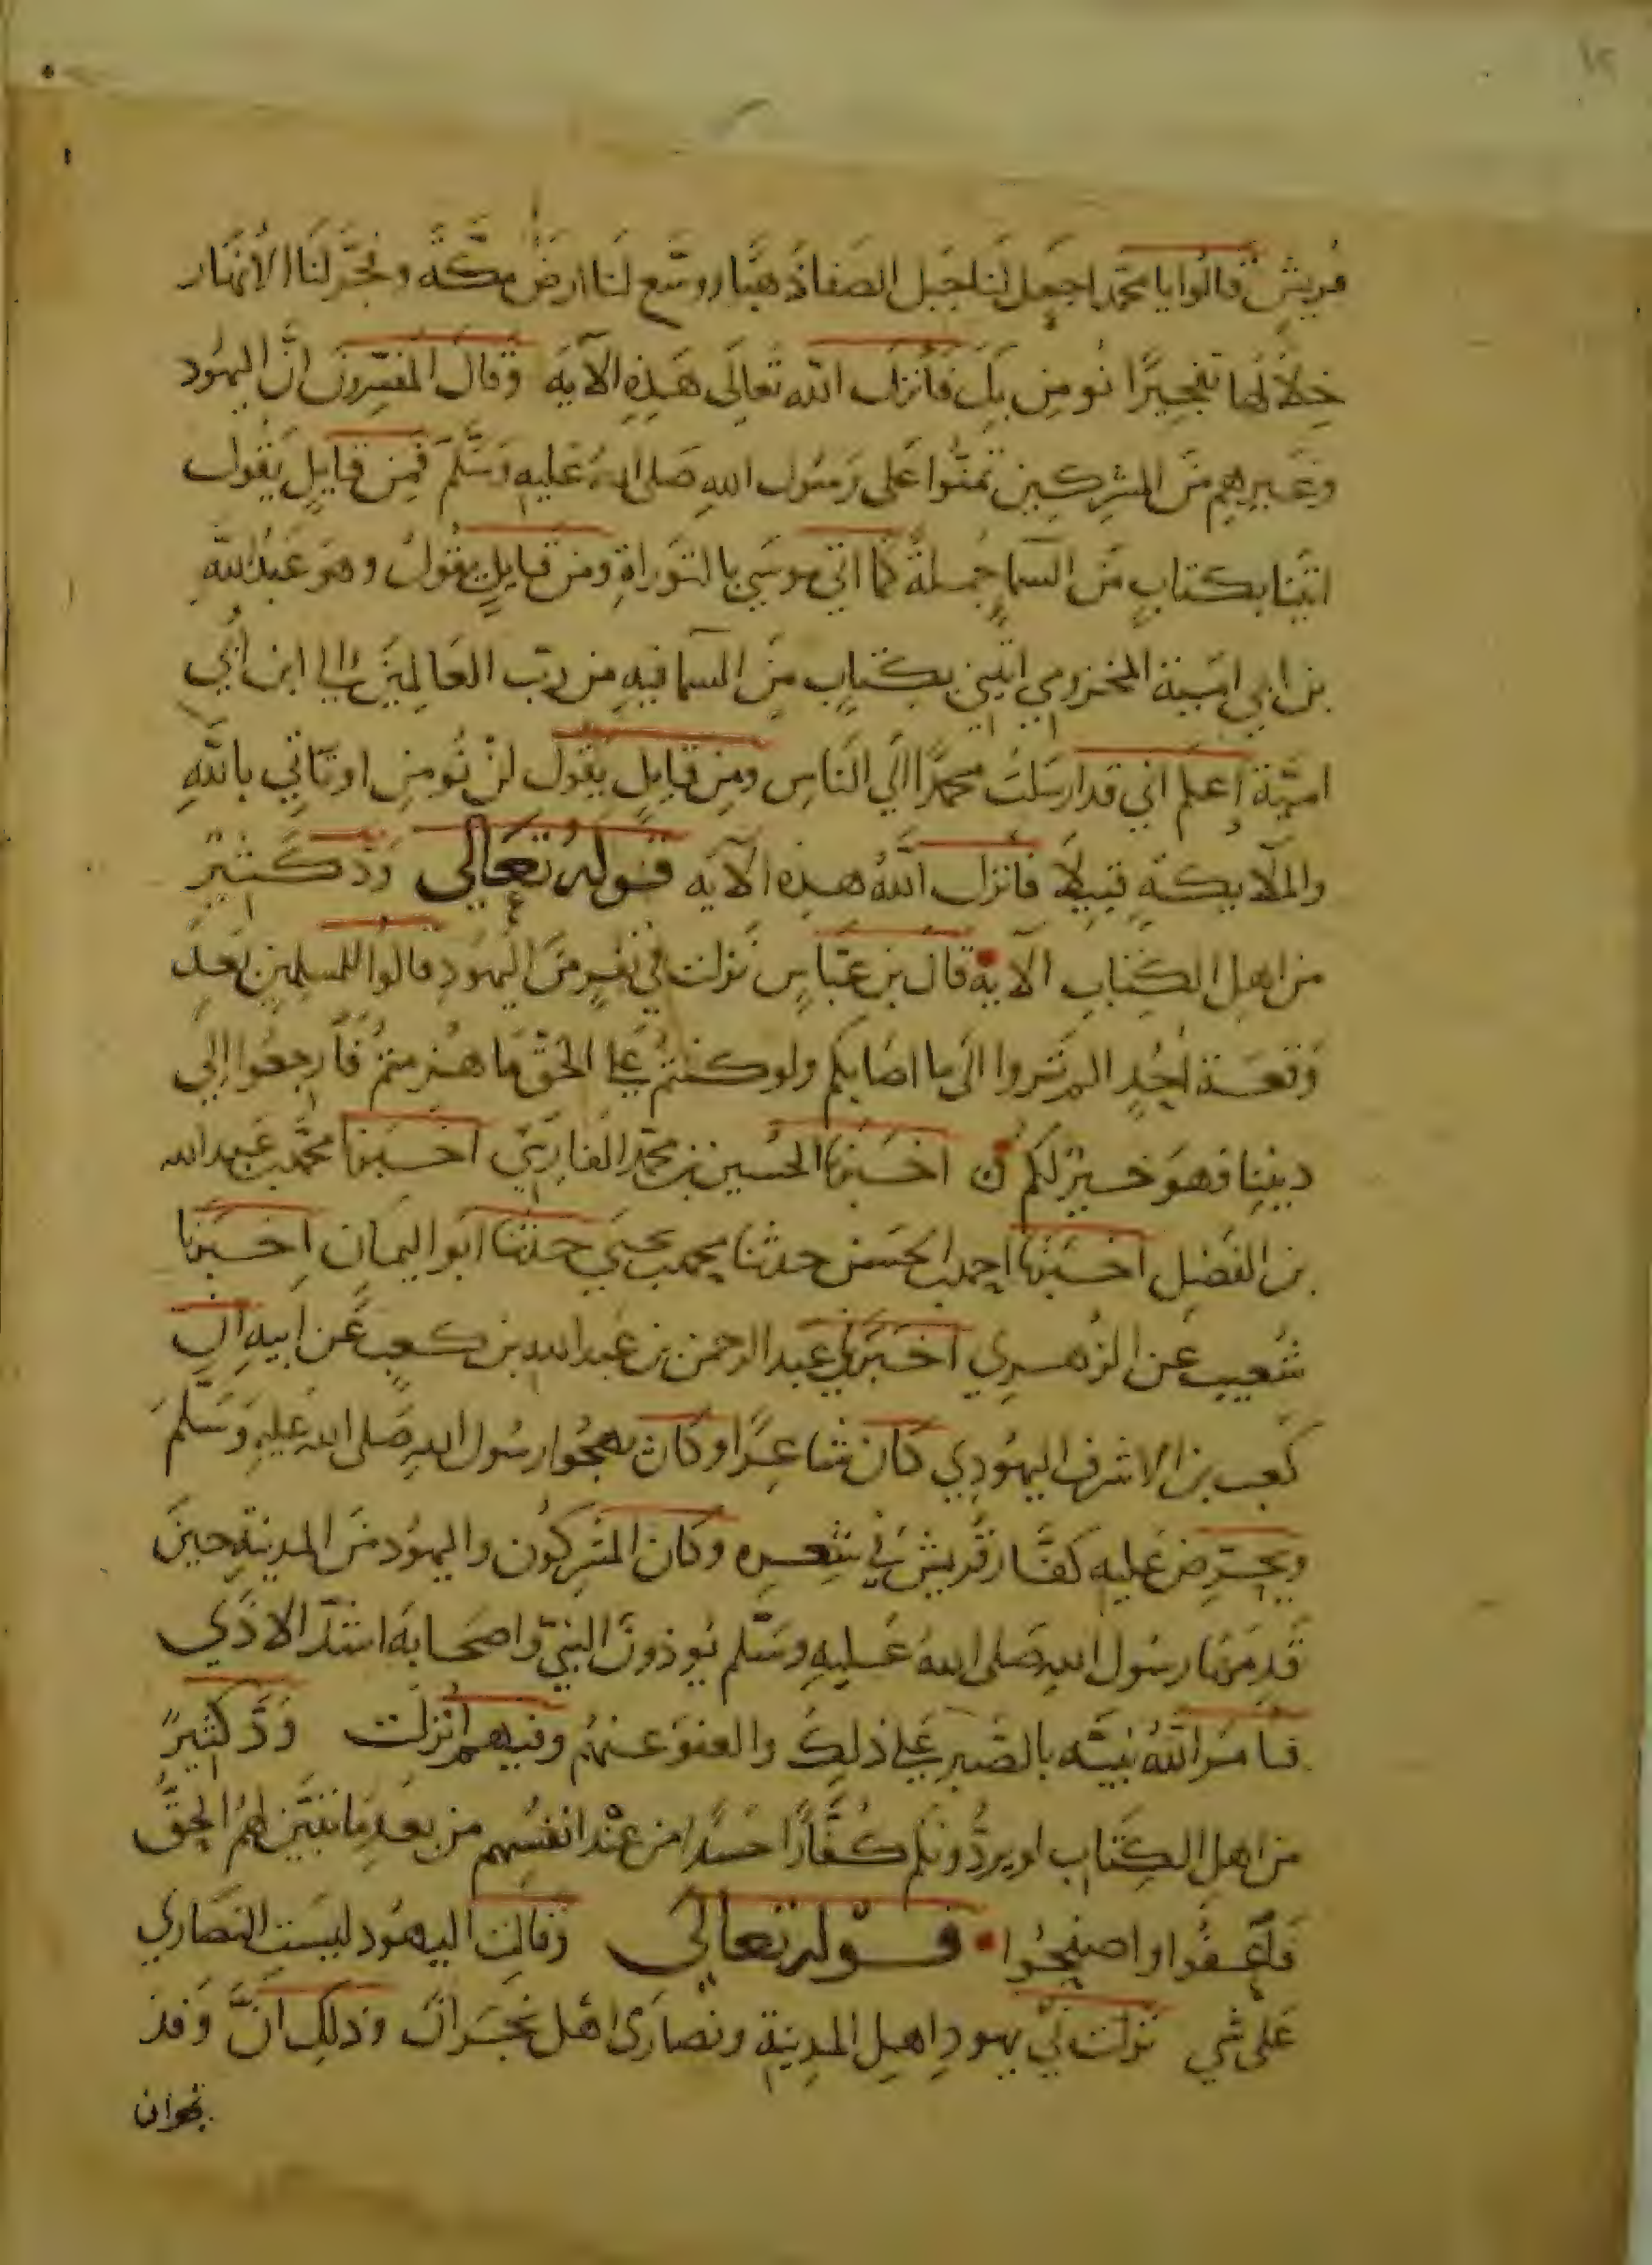 ١٢
قريش قالوا يا محمد اجعل لنا جبل الصفا ذهبا ووسع لنا ارض مكة وفجر لنا الانهار
خلالها تفجيرا نومن بك فانزل الله تعالى هذه الآية وقال المفسرون ان اليهود
وغيرهم من المشركين تمنوا على رسول الله صلى الله عليه وسلم فمن قايل يقول
ائتنا بكتاب من السما جملة كما اتى موسى بالتوراة ومن قايل يقول وهو عبد الله
بن ابي امية المخزومي ايتيني بكتاب من السما فيه من رب العالمين الى ابن ابي
امية اعلم اني قد ارسلت محمدا الى الناس ومن قايل يقول لن نومن او تاتي بالله
والملايكة قبيلا فانزل الله هذه الآية قوله تعالى ود كثير
من اهل الكتاب الآية قال بن عباس نزلت في نفر من اليهود قالوا للمسلمين بعد
وقعة احد الم تروا الى ما اصابكم ولو كنتم على الحق ما هزمتم فارجعوا الى
ديننا فهو خير لكم اخبرنا الحسين بن محمد الفارسي اخبرنا محمد بن عبد الله
بن الفضل اخبرنا احمد بن الحسن حدثنا محمد بن يحيى حدثنا ابو اليمان اخبرنا
شعيب عن الزهري اخبرني عبد الرحمن بن عبد الله بن كعب عن ابيه ان
كعب بن الاشرف اليهودي كان شاعرا وكان يهجوا رسول الله صلى الله عليه وسلم
ويحرض عليه كفار قريش في شعره وكان المشركون واليهود من المدينة حين
قدمها رسول الله صلى الله عليه وسلم يوذون النبي واصحابه اشد الاذي
فامر الله نبيه بالصبر على ذلك والعفو عنهم وفيهم انزلت ود كثير
من اهل الكتاب لو يردونكم كفارا حسدا من عند انفسهم من بعد ما تبين لهم الحق
فاعفوا واصفحوا قوله تعالى وقالت اليهود ليست النصاري
على شي نزلت في يهود اهل المدينة ونصارى اهل نجران وذلك ان وفد
نجران